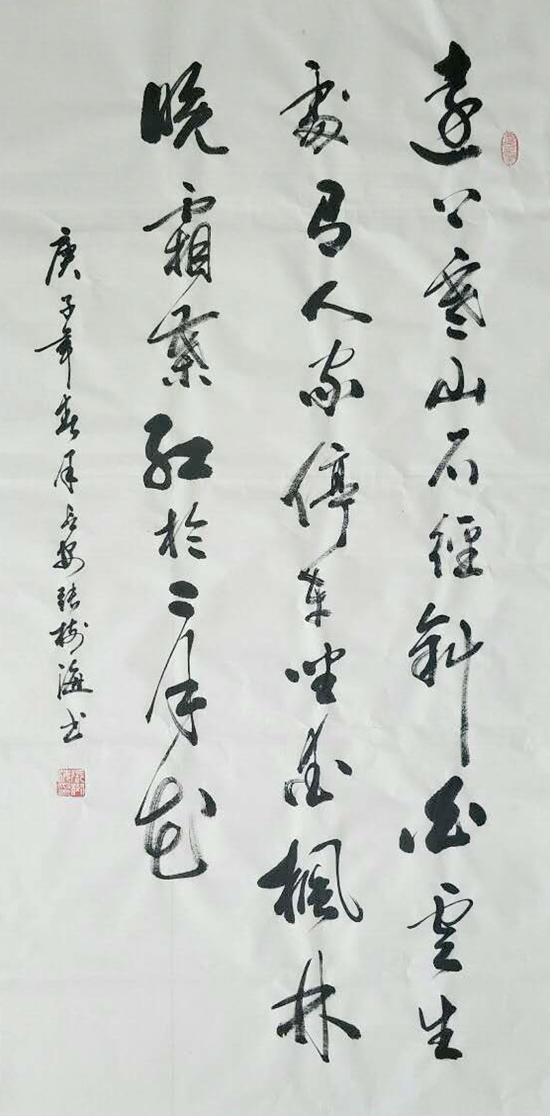 遠上寒山石徑斜白雲生
處有人家停車坐愛楓林
晚霜葉紅於二月花
庚子年春月長安張樹海書